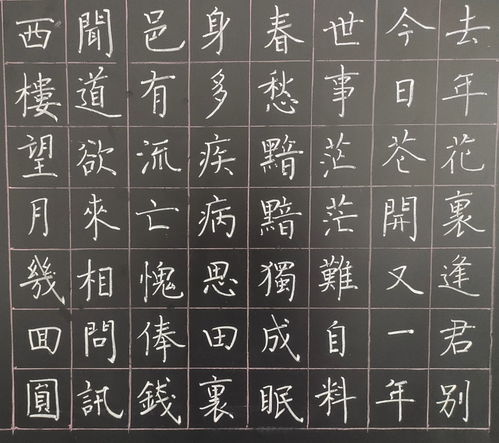 去年花裏逢君别
今日花開又一年
世事茫茫難自料
春愁黯黯獨成眠
身多疾病思田裏
邑有流亡愧俸錢
聞道欲來相問訊
西樓望月幾回圓